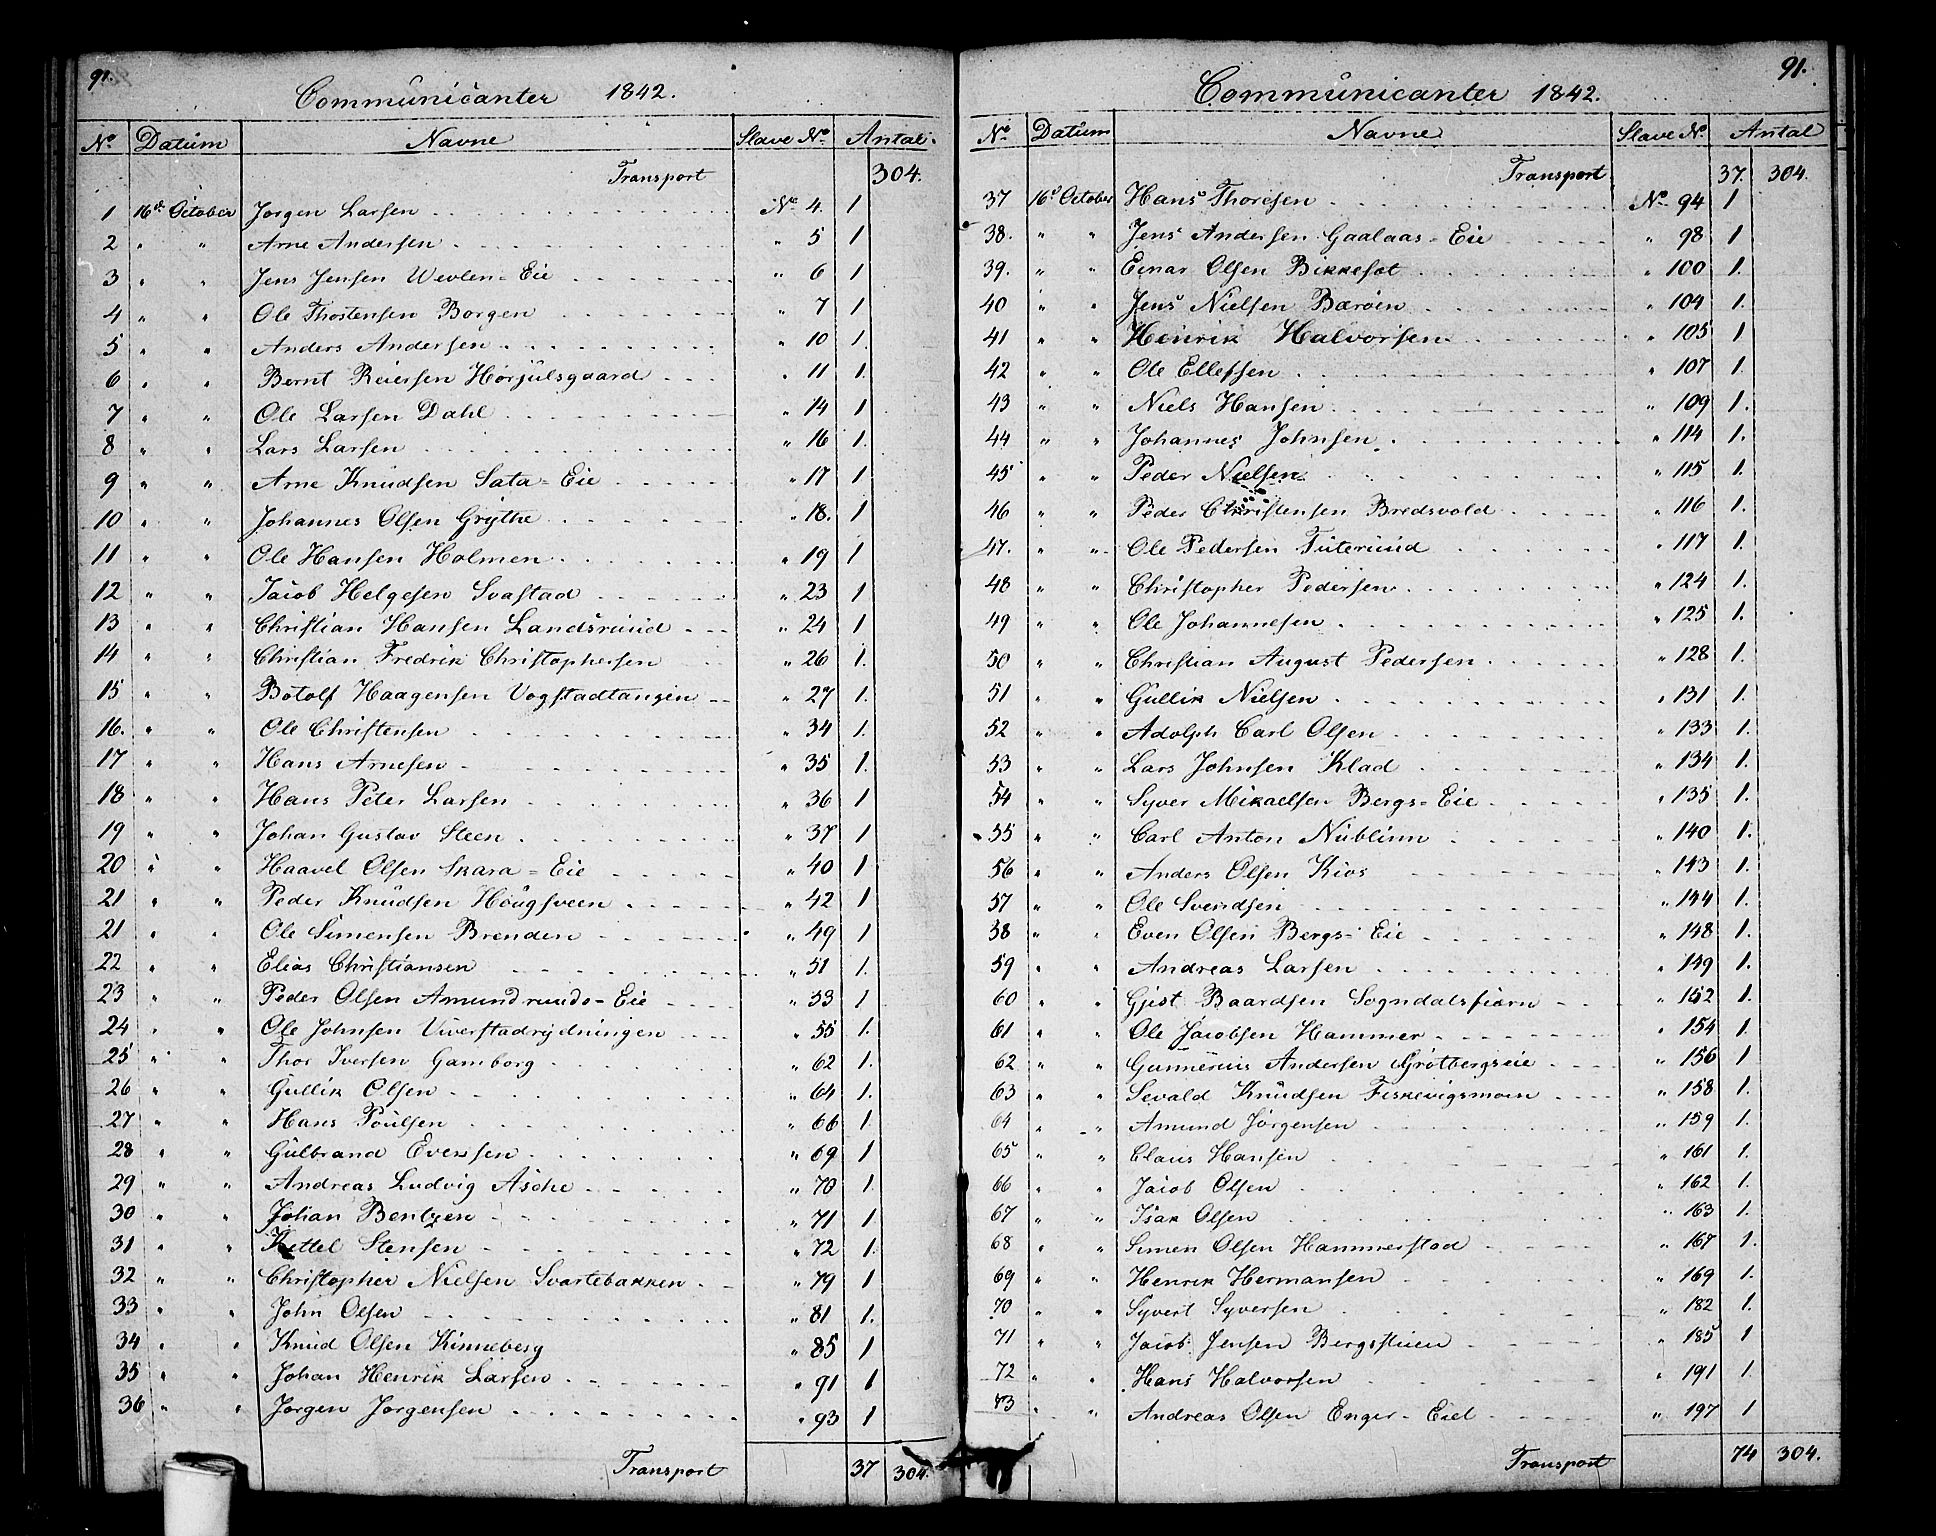 91.
Communicanter 1842.
No. Datum Navne Slave No. Antal.
Transport 304.
1 16de October Jørgen Larsen No. 4. 1
2 " " Arne Andersen " 5 1
3 " " Jens Jensen Wevlen=Eie " 6 1
4 " " Ole Thostensen Borgen " 7 1
5 " " Anders Andersen " 10 1.
6 " " Bernt Reiersen Hørjulsgaard " 11 1.
7 " " Ole Larsen Dahl " 14 1
8 " " Lars Larsen " 16 1.
9 " " Arne Knudsen Sata=Eie " 17 1
10 " " Johannes Olsen Grythe " 18. 1
11 " " Ole Hansen Holmen " 19 1
12 " " Jacob Helgesen Svastad " 23 1
13 " " Christian Hansen Landsruud " 24 1
14 " " Christian Fredrik Christophersen " 26 1.
15 " " Botolf Haagensen Vogstadtangen " 27 1.
16. " " Ole Christensen " 34 1.
17 " " Hans Arnesen " 35 1.
18 " " Hans Peter Larsen " 36 1
19 " " Johan Gustav Steen " 37 1
20 " " Haavel Olsen Skara=Eie " 40 1
21 " " Peder Knudsen Hougsveen " 42 1
21 " " Ole Simensen Brenden " 49 1
22 " " Elias Christiansen " 51 1.
23 " " Peder Olsen Amundruuds=Eie " 53 1
24 " " Ole Johnsen Viverstadrydningen " 55 1.
25 " " Thor Iversen Gamborg " 62 1.
26 " " Gullik Olsen " 64 1.
27 " " Hans Poulsen " 66 1
28 " " Gulbrand Evensen " 69 1
29 " " Andreas Ludvig Asche " 70 1.
30 " " Johan Bentzen " 71 1
31 " " Kettel Stensen " 72 1.
32 " " Christopher Nielsen Svartebakken " 79 1
33 " " John Olsen " 81 1.
34 " " Knud Olsen Kinneberg " 85 1
35 " " Johan Henrik Larsen " 91 1
36 " " Jørgen Jørgensen " 93 1
Transport 37 304.
91.
Communicanter 1842.
No. Datum Navne Slave No. Antal
Transport 37. 304.
37 16d October Hans Thoresen No. 94 1
38. " " Jens Andersen Gaalaas=Eie " 98 1
39. " " Einar Olsen Bikkesot " 100 1.
40 " " Jens Nielsen Bærøen " 104 1.
41 " " Henrik Halvorsen " 105 1
42 " " Ole Ellefsen " 107 1.
43 " " Niels Hansen " 109 1.
44 " " Johannes Johnsen " 114 1.
45 " " Peder Nielsen " 115 1.
46 " " Peder Christensen Bredsvold " 116 1
47. " " Ole Pedersen Tuteruud " 117 1.
48 " " Christopher Pedersen " 124 1.
49 " " Ole Johannesen " 125 1.
50 " " Christian August Pedersen " 128 1.
51 " " Gullik Nielsen " 131 1.
52 " " Adolph Carl Olsen " 133 1.
53 " " Lars Johnsen Klad " 134 1.
54 " " Syver Mikaelsen Bergs=Eie " 135 1.
55 " " Carl Anton Nublinn " 140 1.
56 " " Anders Olsen Kios " 143 1.
57 " " Ole Svendsen " 144 1.
38 " " Even Olsen Bergs=Eie " 148 1.
59 " " Andreas Larsen " 149 1.
60 " " Gjest Baardsen Sogndalsfiørn " 152 1.
61 " " Ole Jacobsen Hammer " 154 1.
62 " " Gunnerius Andersen Grøtbergseie " 156 1
63 " " Sevald Knudsen Fiskevigsmoen " 158 1.
64 " " Amund Jørgensen " 159 1.
65 " " Claus Hansen " 161 1.
66 " " Jacob Olsen " 162 1.
67 " " Isak Olsen " 163 1.
68 " " Simen Olsen Hammerstad " 167 1.
69 " " Henrik Hermansen " 169 1.
70 " " Syvert Syversen " 182 1.
71 " " Jacob Jensen Bergsstuen " 185 1
72 " " Hans Halvorsen " 191 1
73 " " Andreas Olsen Enger=Eiel " 197 1
Transport 74 304.